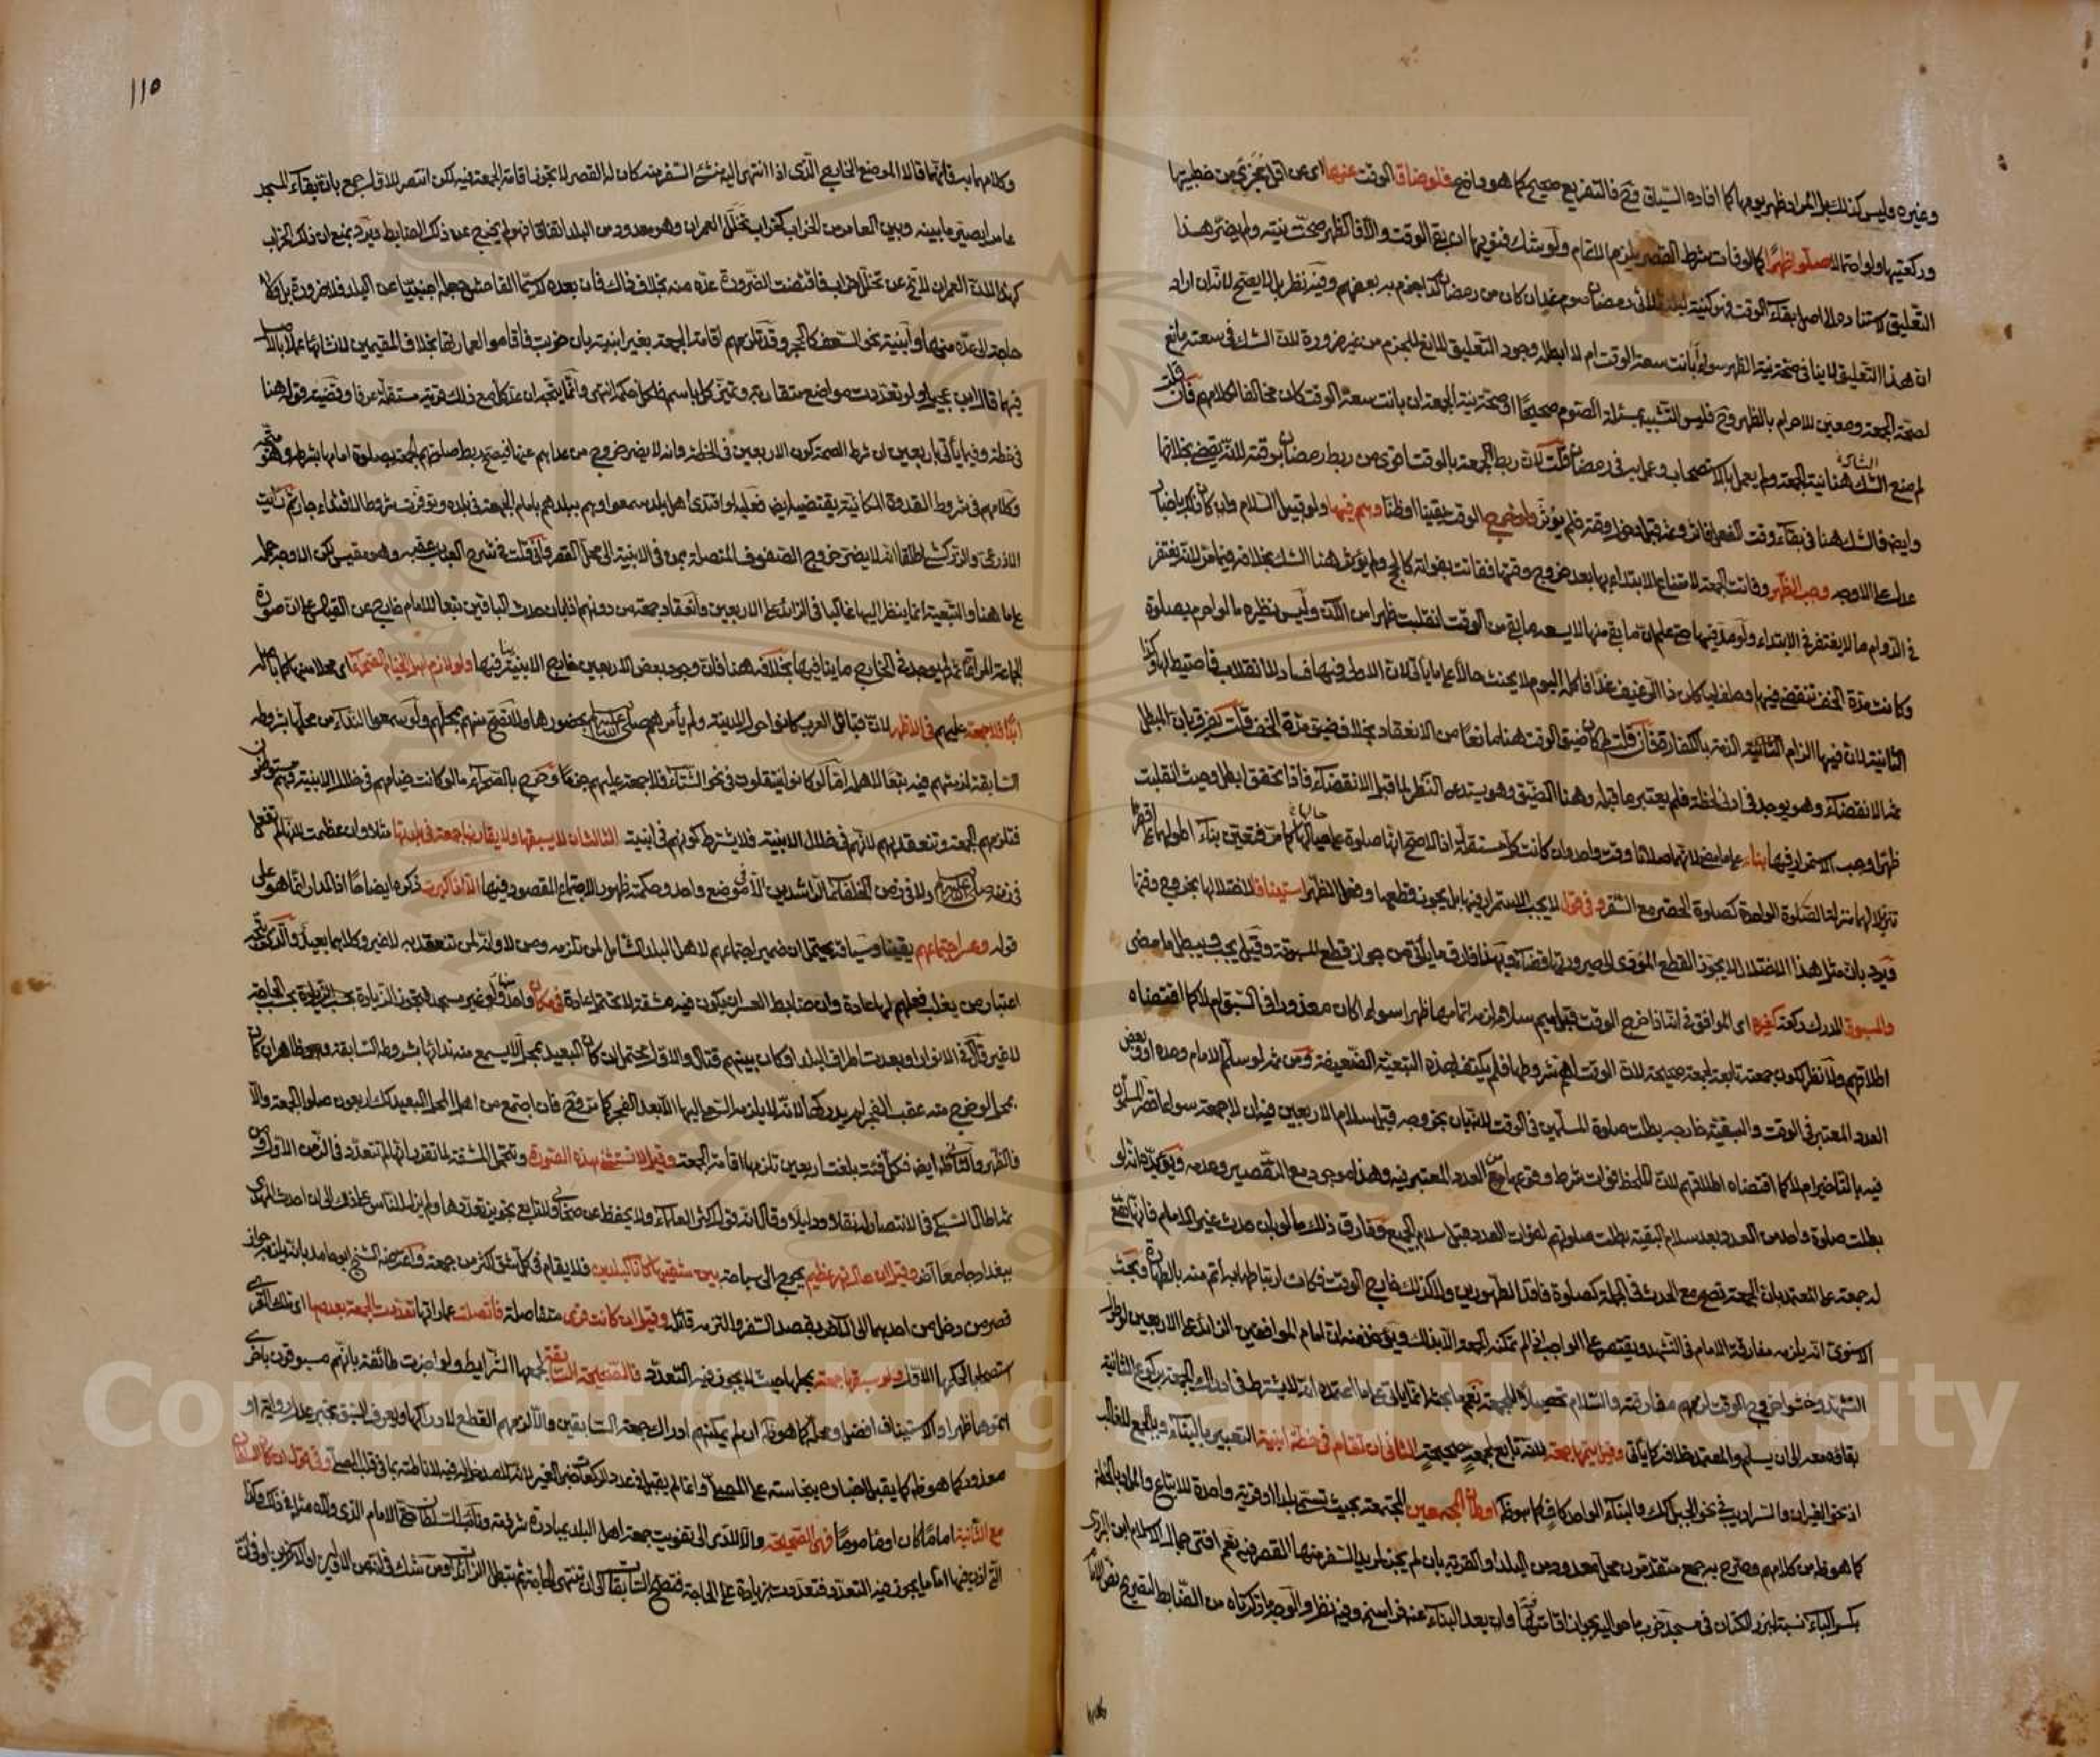 وغيره وليس كذلك بل المراد ظهر يومها كما افاده السياق وح فالتفريع صحيح كما هو واضح فلو ضاق الوقت عنها اى عن اقل مجزئ من خطبتيها
وركعتيها ولو احتمالا صلوا ظهرا كما لو فات شرط القصر يلزم الاتمام ولو شك فنويها ان بقى الوقت والا فالظهر صحت نيته ولم يضر هذا
التعليق لاستناده الى اصل بقاء الوقت فهو كنية ليلة ثلاثى رمضان صوم غد ان كان من رمضان كذا جزم به بعضهم وفيه نظر بل لا يصح لانه ان اراد
ان هذا التعليق لا ينافى صحة نية الظهر سواء ابانت سعة الوقت ام لا ابطله وجود التعليق المانع للجزم من غير ضرورة لان الشك فى سعته مانع
لصحة الجمعة ومعين للاحرام بالظهر وح فليس التشبيه بمسئلة الصوم صحيحا او صحة نية الجمعة ان بانت سعة الوقت كان مخالفا لكلامهم فان قلت
لم منع الشك هنا نية الجمعة ولم يعمل بالاستصحاب وعمل به فى رمضان قلت لان ربط الجمعة بالوقت اقوى من ربط رمضان بوقته لانه يقضى بخلافها
وايضا فالشك هنا فى بقاء وقت الفعل وثم قبل دخول وقته فلم يؤثر ولو خرج الوقت يقينا او ظنا وهم فيها ولو قبيل السلام وان كان ذلك باخبار
عدل على الاوجه وجب الظهر وفاتت الجمعة لامتناع الابتداء بها بعد خروج وقتها ففاتت بفواته كالحج ولم يؤثر هنا الشك بخلافه فيما مر لانه يغتفر
فى الدوام ما لا يغتفر فى الابتداء ولو مد فيها حتى علم ان ما بقى منها لا يسعه ما بقى من الوقت انقلبت ظهرا من الآن وليس نظيره ما لو احرم بصلوة
وكانت مدة الخف تنقضى فيها وحلف لياكلن ذا الرغيف غدا فاكله اليوم لا يحنث حالا على ما ياتى لان الاولى فيها فساد لا انقلاب فاحتيط لها وكذا
الثانية لان فيها الزام الذمة بالكفارة فان قلت لم كان ضيق الوقت هنا مانعا من الانعقاد بخلاف ضيق مدة الخف قلت يفرق بان المبطل
ثم الانقضاء وهو يوجد فى ادنى لحظة فلم يعتبر ما قبله وهنا الضيق وهو يستدعى النظر لما قبل الانقضاء فاذا تحقق ابطل وحيث انقلبت
ظهرا وجب الاستمرار فيها بناء على ما مضى لانهما صلاتا وقت واحد وان كانت كل مستقلة اذ الاصح انها صلوة على حيالها كما مر فتعين بناء اطولهما على اقصرهما
تنزيلا لهما منزلة الصلوة الواحدة كصلوة الحضر مع السفر وفى قول لا يجب الاستمرار فيها بل يجوز قطعها وفعل الظهر استينافا لانتقالها بخروج وقتها
ويرد بان مثل هذا الانتقال لا يجوز القطع المؤدى الى صيرورتها قضاء وبهذا فارق ما ياتى من جواز قطع المسبوقة وقيل يجب ويبطل ما مضى
والمسبوق المدرك ركعة كغيره اى الموافق فى انه اذا خرج الوقت قبل سلامه لزمه اتمامها ظهرا سواء اكان معذورا فى السبق ام لا كما اقتضاه
اطلاقهم ولا نظر لكون جمعته تابعة لجمعة صحيحة لان الوقت اهم شروطها فلم يكتف بهذه التبعية الضعيفة ومن ثم لو سلم الامام وحده او وبعض
العدد المعتبر فى الوقت والبقية خارجه بطلت صلوة المسلمين فى الوقت لانه بان بخروجه قبل سلام الاربعين فيه ان لا جمعة سواء قصر المسلمون
فيه بالتاخير ام لا كما اقتضاه اطلاقهم لان الملحظ فوات شرط وقوعها مع العدد المعتبر فيه وهذا موجود مع التقصير وعدمه ويؤيده انه لو
بطلت صلوة واحد من العدد بعد سلام البقية بطلت صلوتهم لفوات العدد قبل سلام الجميع وفارق ذلك ما لو بان حدث غير الامام فانها تقع
له جمعة على المعتمد بان الجمعة تصح مع الحدث فى الجملة كصلوة فاقد الطهورين ولا كذلك خارج الوقت فكان ارتباطها به اتم منه بالطهارة وبحث
الاسنوى انه يلزمه مفارقة الامام فى التشهد ويقتصر على الواجب اذا لم تمكنه الجمعة الا بذلك ويؤخذ منه ان امام الموافقين الزائد على الاربعين لو طول
التشهد وخشوا خروج الوقت لزمهم مفارقته والسلام تحصيلا للجمعة نعم ما بحثه انما ياتى على ما اعتمده انه لا يشترط فى ادراك الجمعة بركوع الثانية
بقاؤه معه الى ان يسلم والمعتمد خلافه كما ياتى وقيل يتمها جمعة لانه تابع لجمعة صحيحة الثانى ان تقام فى خطة ابنية التعبير بالبناء وبالجمع للغالب
اذ نحو الغيران والسراديب فى نحو الجبل كذلك والبناء الواحد كاف كما هو ظ اوطان المجمعين المجتمعة بحيث تسمى بلدا او قرية واحدة للاتباع والمراد بالخطة
كما هو ظ من كلامهم وصرح به جمع متقدمون محل معدود من البلد او القرية بان لم يجز لمريد السفر منها القصر فيه نعم افتى جمال الاسلام ابن البزرى
بكسر الباء نسبة لبزر الكتان فى مسجد خرب ما حواليه بجواز اقامتها فيه وان بعد البناء عنه فراسخ وفيه نظر والاوجه ما ذكرناه من الضابط لتصريح نص الام
وكلامهما
١١٥
وكلامهما به فانهما قالا الموضع الخارج الذى اذا انتهى اليه منشئ السفر منه كان له القصر لا تجوز اقامة الجمعة فيه لكن انتصر للاول جمع بان بقاء المسجد
عامرا يصير ما بينه وبين العامر من الخراب كخراب تخلل العمران وهو معدود من البلد اتفاقا فهو لم يخرج عن ذلك الضابط ويرد بمنع ان ذلك الخراب
كهذا لان العمران لا تخ عن تخلل خراب فاقتضت الضرورة عده منه بخلاف ذاك فان بعده لا سيما الفاحش جعله اجنبيا عن البلد فلا ضرورة بل ولا
حاجة الى عده منها وابنية نحو السعف كالحجر وقد تلزمهم اقامة الجمعة بغير ابنية بان خربت فاقاموا لعمارتها بخلاف المقيمين لانشائها عملا بالاصل
فيهما قال ابن عجيل ولو تعددت مواضع متقاربة وتميز كل باسم فلكل حكمه انتهى وانما يتجه ان عد كل مع ذلك قرية مستقلة عرفا وقضية قوله هنا
فى خطة وفيما ياتى باربعين ان شرط الصحة كون الاربعين فى الخطة وانه لا يضر خروج من عداهم عنها فيصح ربط صلوتهم بجمعة بصلوة امامها بشرطه وهو متجه
وكلامهم فى شروط القدوة المكانية يقتضيه ايضا فعليه لو اقتدى اهل بلد سمعوا وهم ببلدهم بامام الجمعة فى بلده وتوفرت شروط الاقتداء جاز ثم رايت
الاذرعى والزركشى اطلقا انه لا يضر خروج الصفوف المتصلة بمن فى الابنية الى محل القصر وانى قلت فى شرح العباب عقبه وهو مقيس لكن الاوجه حمله
على ما هنا والتبعية انما ينظر اليها غالبا فى الزائد على الاربعين وانعقاد جمعة من دونهم اذا بان حدث الباقين تبعا للامام خارج عن القياس على ان صورة
الجماعة المراعاة ثم لم يوجد فى الخارج ما ينافيها بخلافه هنا فان وجود بعض الاربعين خارج الابنية ينافيها ولو لازم اهل الخيام الصحراء اى محلا منها كما باصله
ابدا فلا جمعة عليهم فى الاظهر لان قبائل العرب كانوا حول المدينة ولم يأمرهم صلى الله عليه وسلم بحضورها ولا تصح منهم بمحلهم ولو سمعوا النداء من محلها بشروطه
السابقة لزمتهم فيه تبعا لاهله اما لو كانوا ينتقلون فى نحو الشتاء فلا جمعة عليهم جزما وخرج بالصحراء ما لو كانت خيامهم فى خلال الابنية وهم مستوطنون
فتلزمهم الجمعة وتنعقد بهم لانهم فى خلال الابنية فلا يشترط كونهم فى ابنية الثالث ان لا يسبقها ولا يقارنها جمعة فى بلدتها مثلا وان عظمت لانها لم تفعل
فى زمنه صلى الله عليه وسلم ولا فى زمن الخلفاء الراشدين الا فى موضع واحد وحكمته ظهور الاجتماع المقصود فيها الا اذا كبرت ذكره ايضاحا اذ المدار انما هو على
قوله وعسر اجتماعهم يقينا وسياقه يحتمل ان ضمير اجتماعهم لاهل البلد الشامل لمن تلزمه ومن لا وانه لمن تنعقد به لا غير وكلاهما بعيد والذى يتجه
اعتبار من يغلب فعلهم لها عادة وان ضابط العسر ان يكون فيه مشقة لا تحتمل عادة فى مكان واحد منها ولو غير مسجد فتجوز الزيادة بحسب الحاجة
لا غير قال فى الانوار او بعدت اطراف البلد او كان بينهم قتال والاول محتمل ان كان البعيد بمحل لا يسمع منه نداءها بشروطه السابقة وظاهر ان كان
بمحل لو خرج منه عقب الفجر لم يدركها لانه لا يلزمه السعى اليها الا بعد الفجر كما مر وح فان اجتمع من اهل المحل البعيد كذلك اربعون صلوا الجمعة والا
فالظهر والثانى ظ ايضا فكل فئة بلغت اربعين تلزمها اقامة الجمعة وقيل لا تستثنى هذه الصورة وتتحمل المشقة لما تقرر انها لم تتعدد فى الزمن الاول ومن
ثم اطال السبكى فى الانتصار له نقلا ودليلا وقال انه قول اكثر العلماء ولا يحفظ عن صحابى ولا تابعى تجويز تعددها ولم يزل الناس على ذلك الى ان احدث المهدى
ببغداد جامعا اخر وقيل ان حال نهر عظيم يحوج الى سباحة بين شقيها كانا كبلدين فلا يقام فى كل شق اكثر من جمعة واعترضه الشيخ ابو حامد بانه يلزمه جواز
قصر من دخل من احدهما الى الآخر بقصد السفر والتزمه قائله وقيل ان كانت قرى متفاصلة فاتصلت عمارتها تعددت الجمعة بعددها اى تلك القرى
استصحابا لحكمها الاول ولو سبقها جمعة بمحلها حيث لا يجوز فيه التعدد فالصحيحة السابقة لجمعها الشرائط ولو اخبرت طائفة بانهم مسبوقون باخرى
اتموها ظهرا والاستيناف افضل ومحله كما هو ظ ان لم يمكنهم ادراك جمعة السابقين والا لزمهم القطع لادراكها ويعرف السبق بخبر عدل رواية او
معذور كما هو ظ كما يقبل اخباره بنجاسة على المصلى وانما لم يقبل فى عدد الركعات خبر الغير لانه لا مدخل له فيه لاناطته بما فى قلب المصلى وفى قول ان كان السلطان
مع الثانية اماما كان او مأموما فهى الصحيحة والا لادى الى تفويت جمعة اهل البلد بمبادرة شرذمة ونائب السلطان حتى الامام الذى ولاه مثله فى ذلك وكذا
الذى اذن فيها اما ما يجوز فيه التعدد فتعددت بزيادة على الحاجة فتصح السابقات الى ان تنتهى الحاجة ثم تبطل الزائدات ومن شك فى انه من الاولين او الآخرين او فى ان